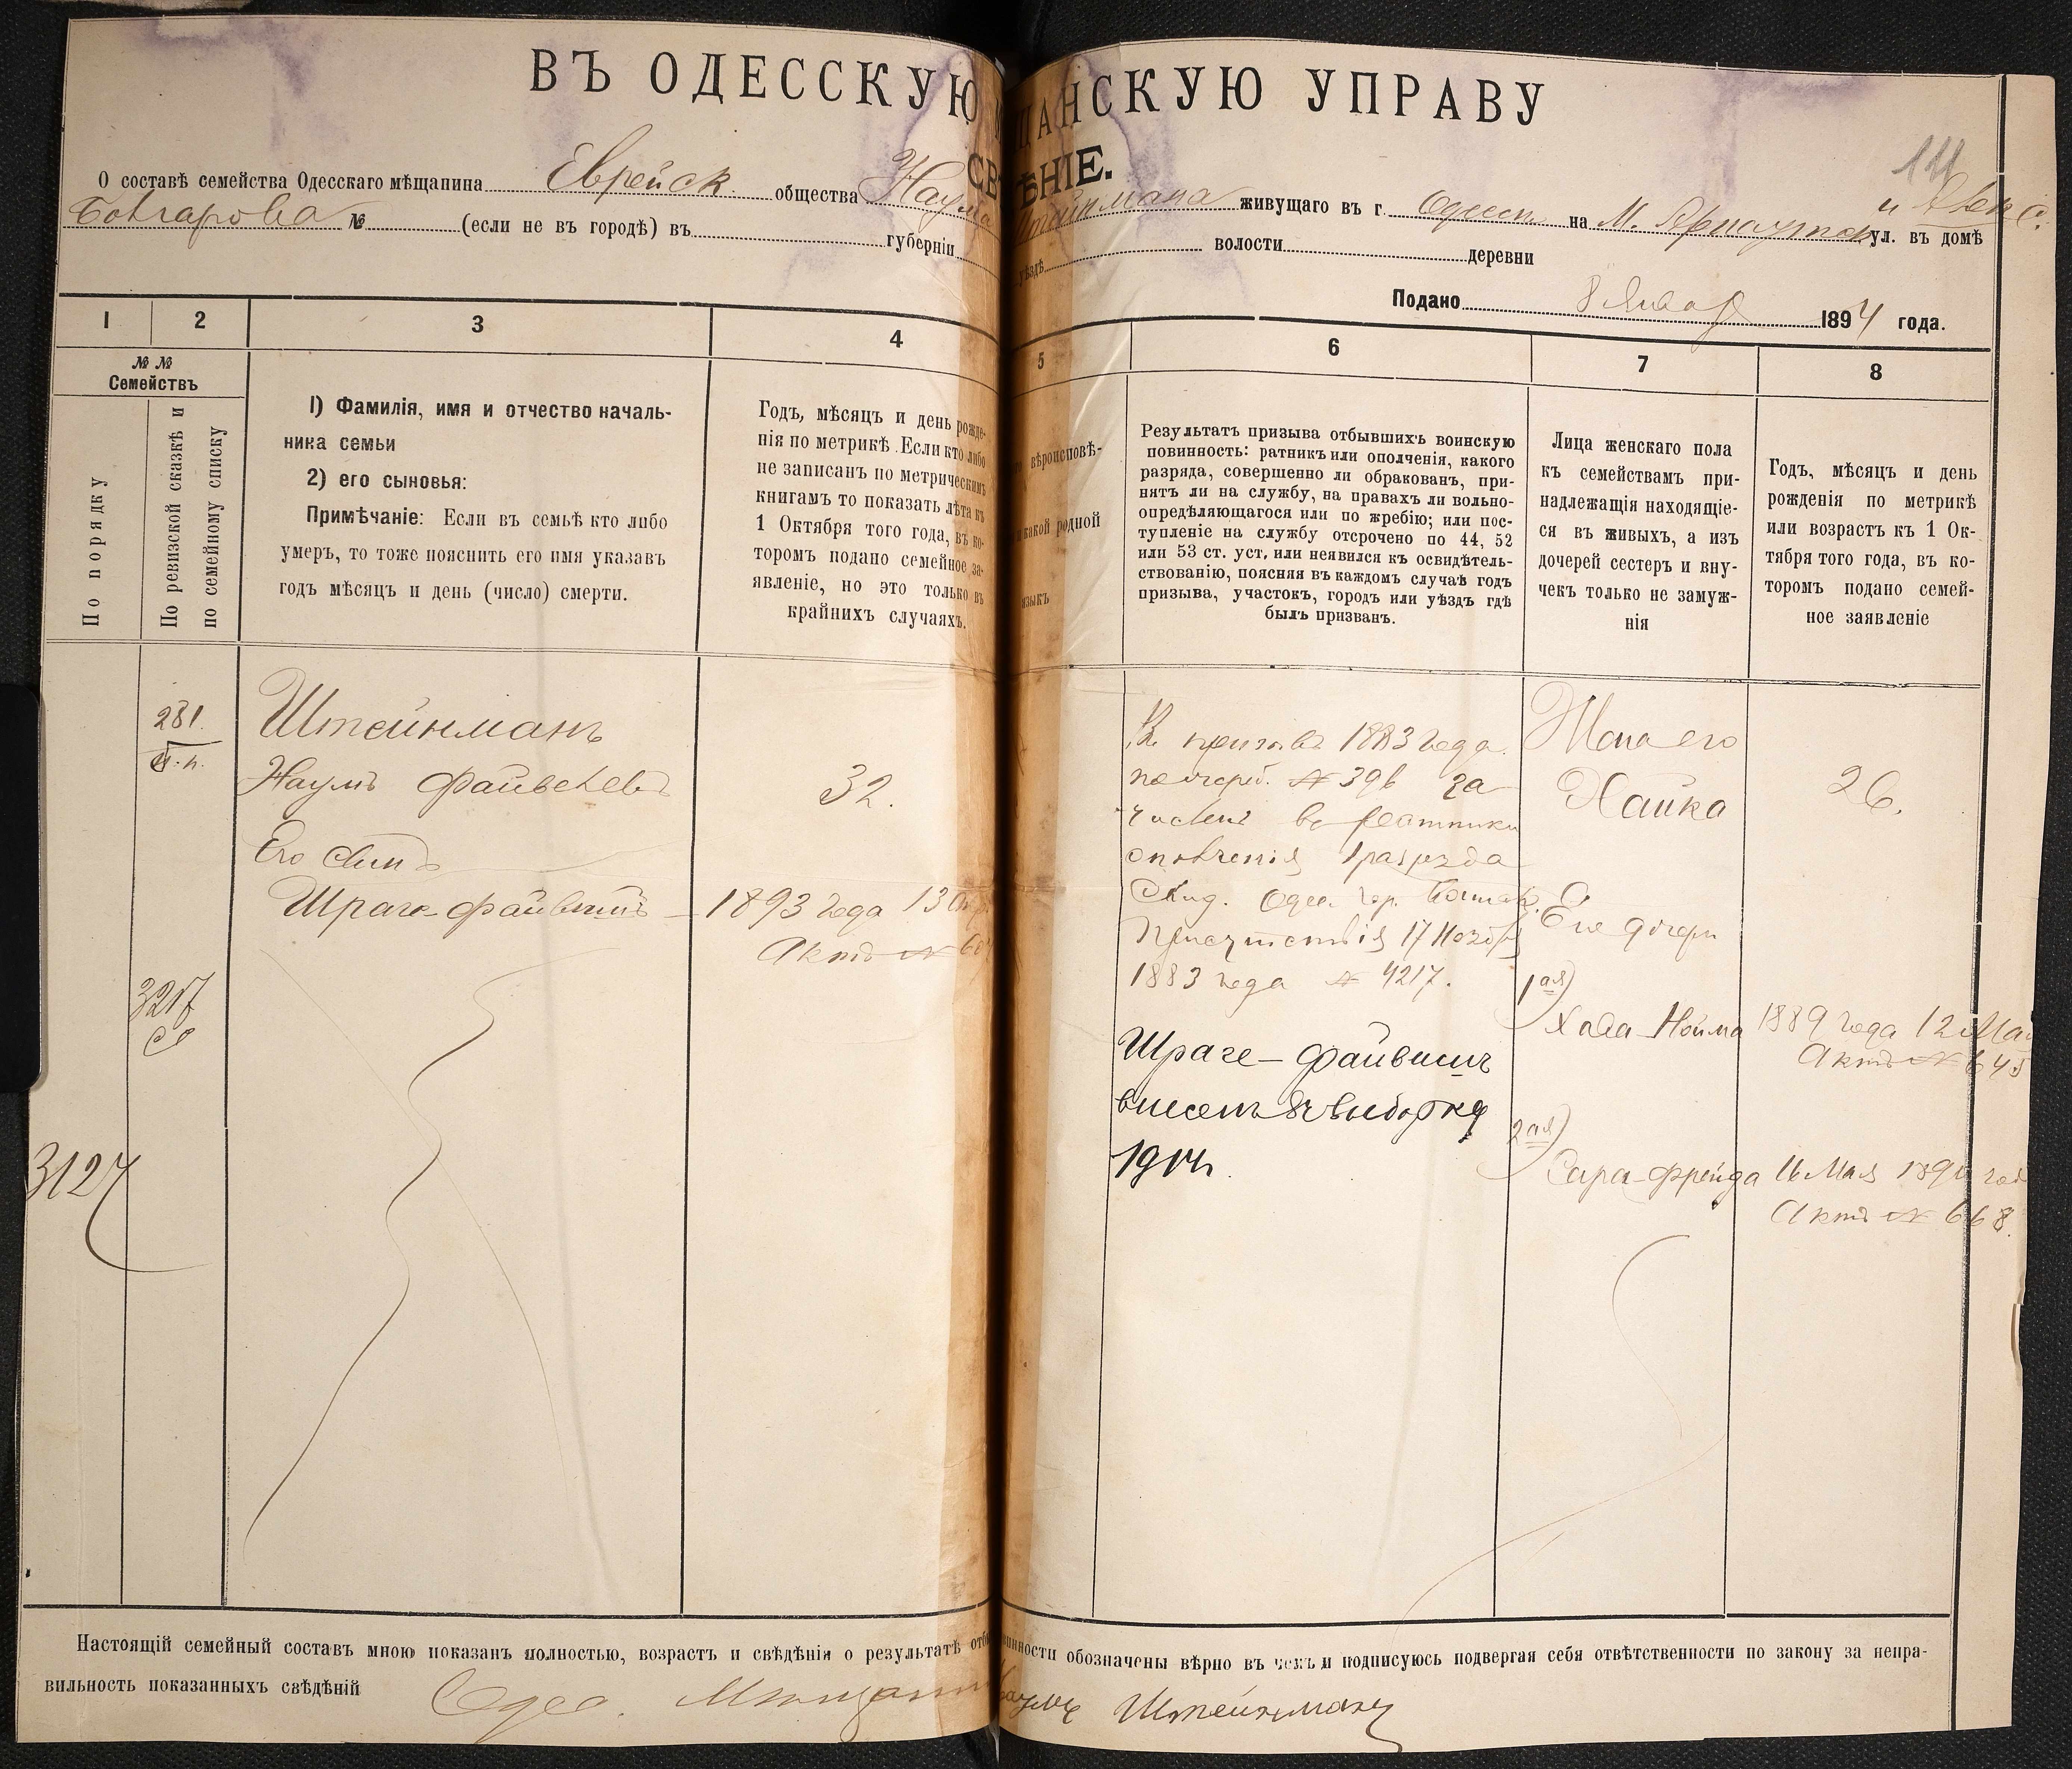 ВЪ ОДЕССКУЮ ЩАНСКУЮ УПРАВУ
СВ ѢНІЕ.
О составѣ семейства Одесскаго мѣщанина Еврейск. общества Наума Штейнмана живущаго въ г. Одесс на М. Арнаутск ул. въ домѣ
Болгарова № (если не въ городѣ) въ губерніи уѣздѣ волости деревни
Подано 8 Января 1894 года.
1 2 3 4 5 6 7 8
№ №
Семействъ
По порядку
По ревизской сказкѣ и
по семейному списку
1) Фамилія, имя и отчество началь-
ника семьи
2) его сыновья:
Примѣчаніе: Если въ семьѣ кто либо
умеръ, то тоже пояснить его имя указавъ
годъ мѣсяцъ и день (число) смерти.
Годъ, мѣсяцъ и день рожде-
нія по метрикѣ. Если кто либо
не записанъ по метрическимъ
книгамъ то показать лѣта къ
1 Октября того года, въ ко-
торомъ подано семейное за-
явленіе, но это только въ
крайнихъ случаяхъ.
вѣроисповѣ-
какой родной
языкъ
Результатъ призыва отбывшихъ воинскую
повинность: ратникъ или ополченія, какого
разряда, совершенно ли обракованъ, при-
нятъ ли на службу, на правахъ ли вольно-
опредѣляющагося или по жребію; или пос-
тупленіе на службу отсрочено по 44, 52
или 53 ст. уст, или неявился къ освидѣтель-
ствованію, поясняя въ каждомъ случаѣ годъ
призыва, участокъ, городъ или уѣздъ гдѣ
былъ призванъ.
Лица женскаго пола
къ семействамъ при-
надлежащія находящіе-
ся въ живыхъ, а изъ
дочерей сестеръ и вну-
чекъ только не замуж-
нія
Годъ, мѣсяцъ и день
рожденія по метрикѣ
или возрастъ къ 1 Ок-
тября того года, въ ко-
торомъ подано семей-
ное заявленіе
281.
Штейнманъ
Наумъ Файвелевъ
32.
Его сынъ
Шраге-Файвишъ
1893 года 13
Актъ №
3217
3127
Къ призыву 1883 года
по жереб. № 396 за
численъ въ ратники
ополченія 1 разряда
Свид. Одес. Гор. Воинск.
Присутствія 17 Ноября
1883 года № 4217.
Шраге-Файвишъ
внесенъ въ выборку
1914.
Жена его
Хайка
26.
Его дочери
1ая)
Хава-Нойма 1889 года 12 Мая
Актъ № 645
2ая)
Сара-Фрейда 16 Мая
Актъ № 668.
Настоящій семейный составъ мною показанъ полностью, возрастъ и свѣдѣнія о результатѣ отб инности обозначены вѣрно въ чемъ и подписуюсь подвергая себя отвѣтственности по закону за непра-
вильность показанныхъ свѣдѣній Одес. Мѣщанинъ Наумъ Штейнманъ